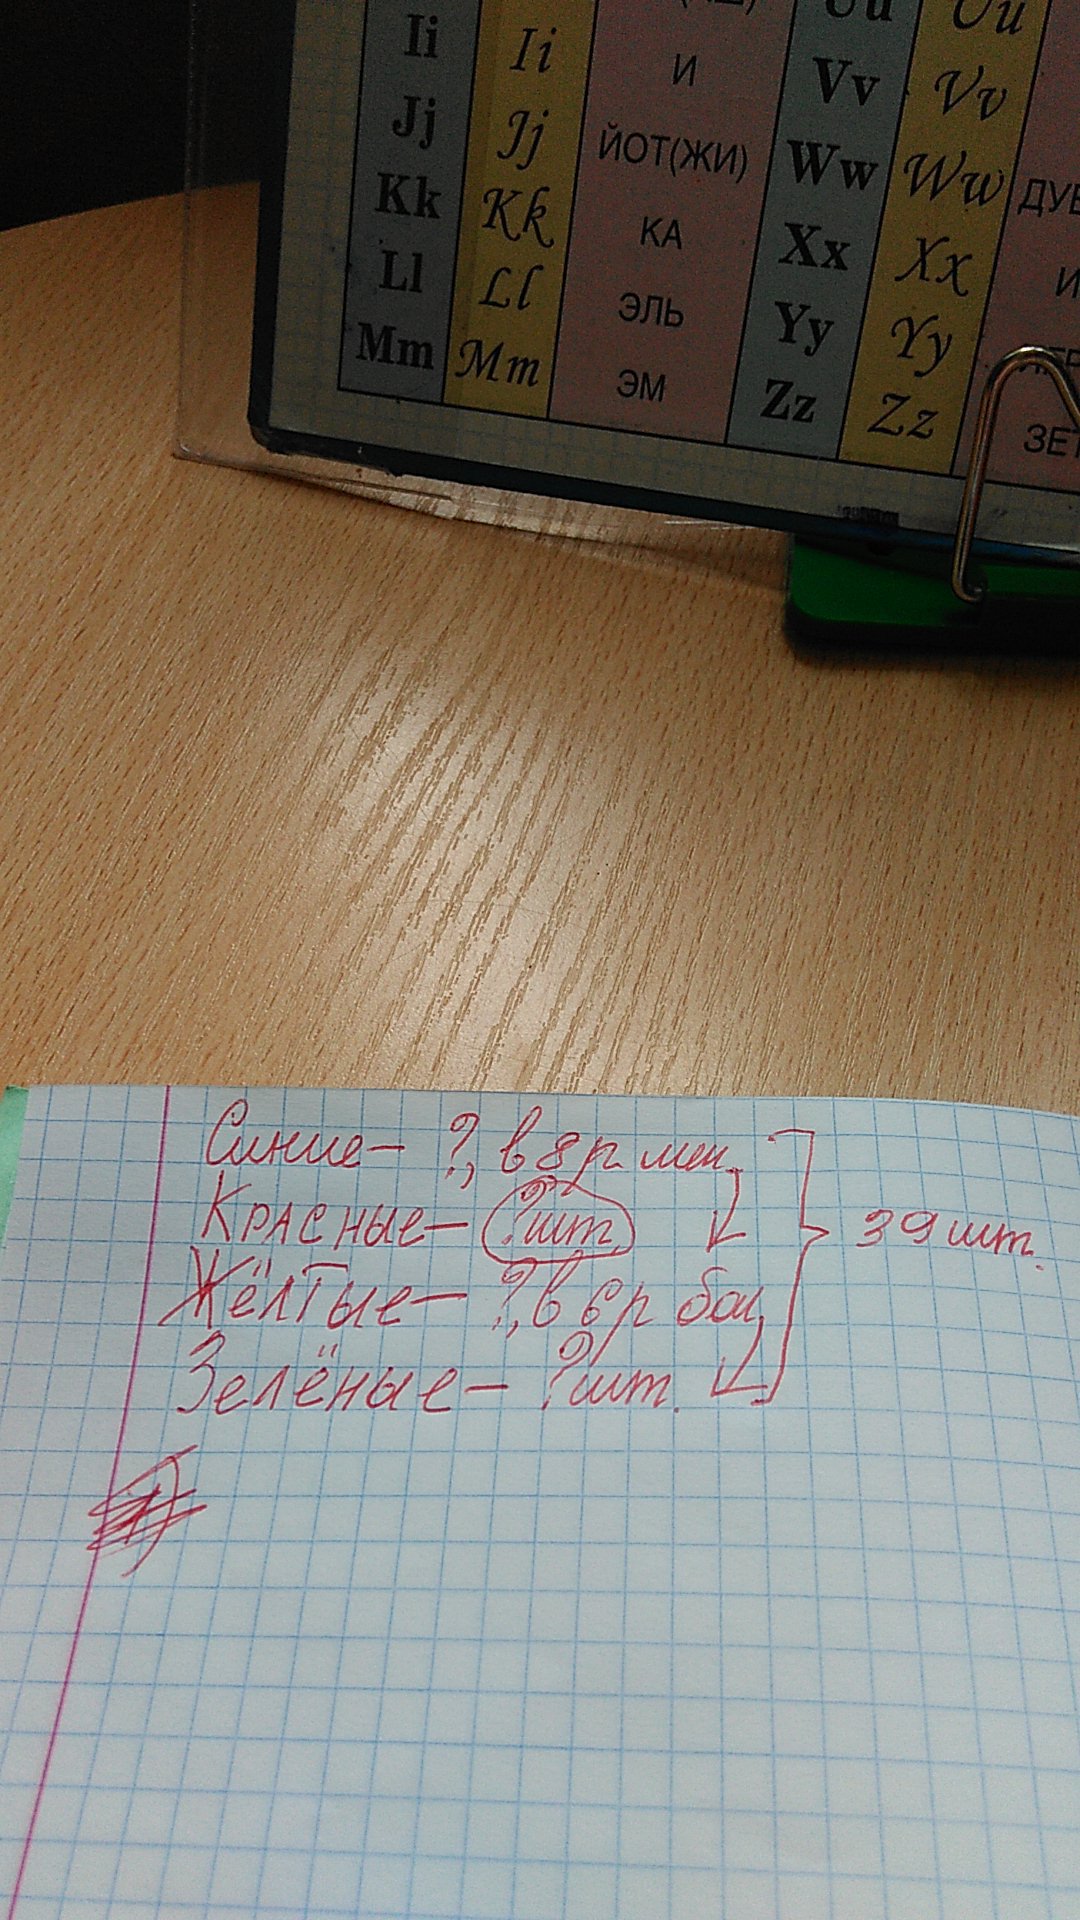 Ii Ii И
Jj Jj ЙОТ(ЖИ)
Kk Kk КА
Ll Ll ЭЛЬ
Mm Mm ЭМ
Uu Uu
Vv Vv
Ww Ww
Xx Xx
Yy Yy
Zz Zz ЗЕТ
Синие - ?, в 8 р мен.
Красные - ? шт.
Жёлтые - ?, в 6 р бол,
Зелёные - ? шт.
39 шт.